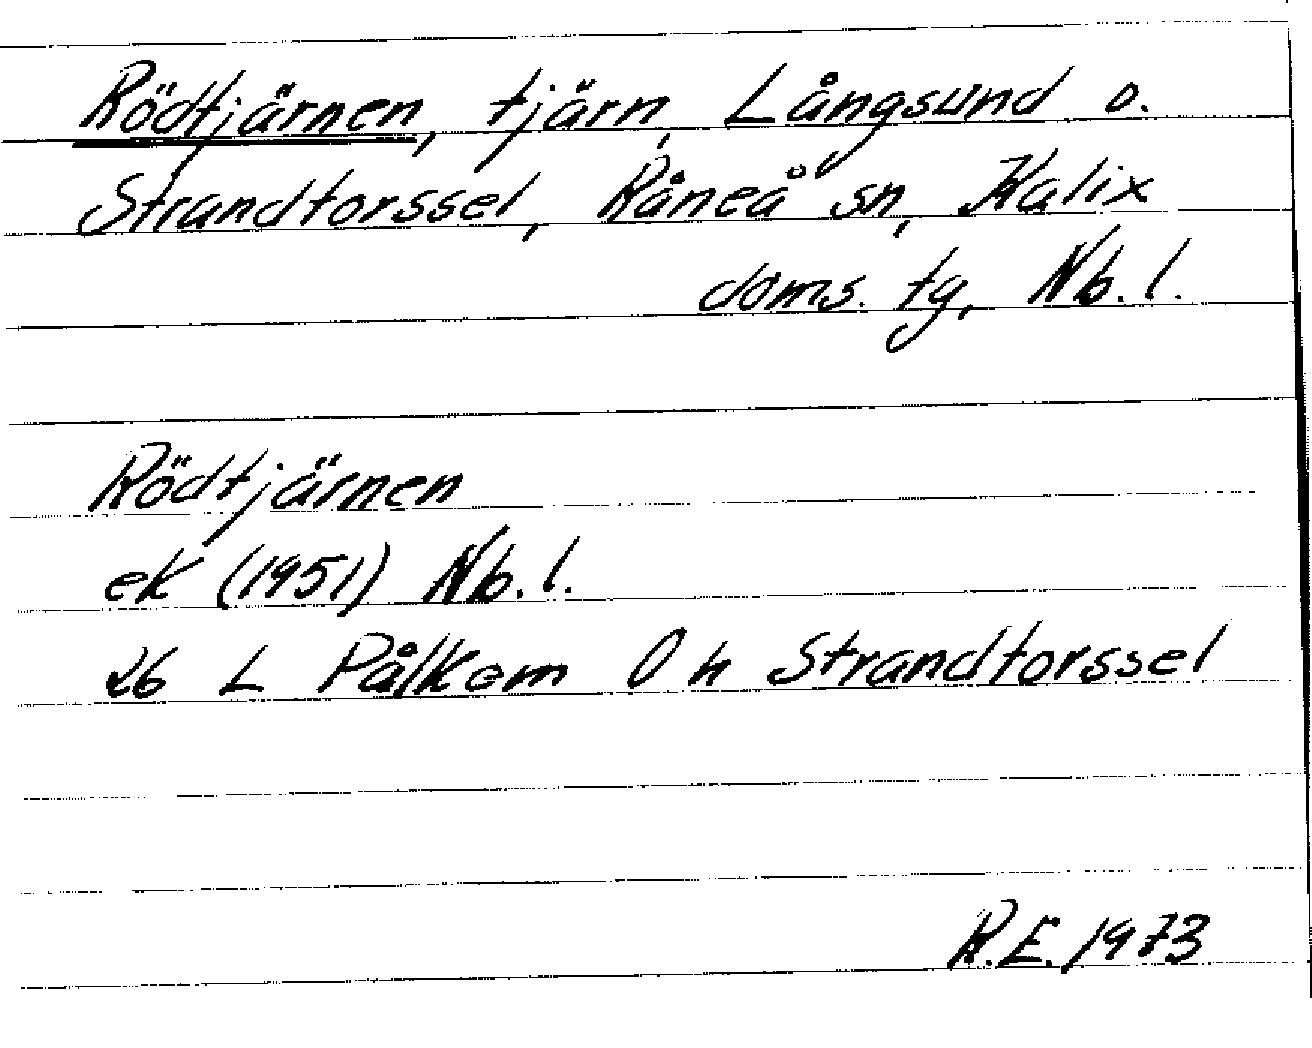 Rödtjärnen, tjärn, Långsund o.
Strandtorssel, Råneå sn, Kalix
doms. tg, Nb. l.
Rödtjärnen
ek (1951) Nb. l.
26 L Pålkem O h Strandtorssel
R.E. 1973